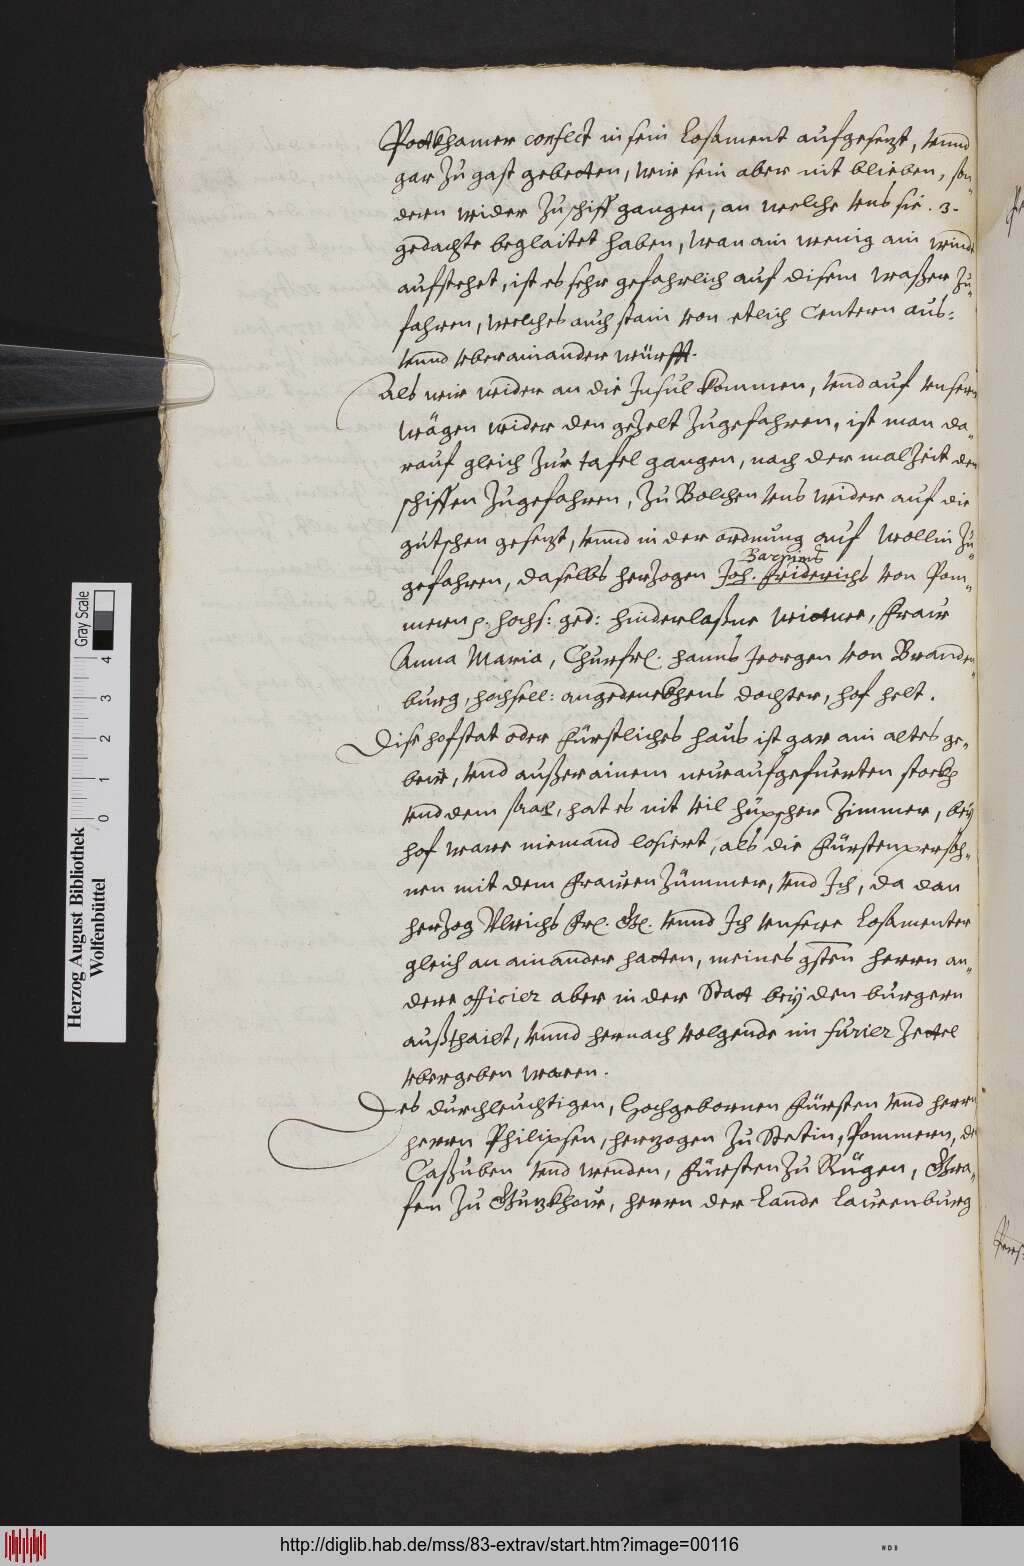 Pottkhamer confect in sein Losament aufgesezt, vnnd
gar zu gast gebetten, wir sein aber nit blieben, son=
dern wider zu schiff gangen, an welche vns sie .3.
gedachte beglaitet haben, wan ain wenig ain wind
aufstehet, ist es sehr gefahrlich auf disem waßer zu=
fahren, welches auch stain von etlich Centern aus=
vnnd vberainander würfft.
Als wir wider an die Insul kommen, vnd auf vnsern
wägen wider den gezelt zugefahren, ist man da=
rauf gleich zur tafel gangen, nach der malzeit den
schiffen zugefahren, zu Bolchen vns wider auf die
gutschen gesezt, vnnd in der ordnung auf Wollin zu=
Barnims
gefahren, daselbs herzogen Joh. Friderichs von Pom=
mern p. hochs: ged: hinderlaßne Wittwe, Fraw
Anna Maria, Churfrl. hanns Jeorgen von Branden=
burg, hochsell: angedenckhens dochter, hof helt.
Dise hofstat oder Fürstliches haus ist gar ain altes ge=
bew, vnd außer ainem neuraufgefuerten stockh
vnd dem saal, hat es nit vil hüpscher Zimmer, bey
hof ware niemand losiert, als die Fürstenpersoh=
nen mit dem Frawenzümmer, vnd Ich, da dan
herzog Vlrichs Frl. Gl. vnnd Ich vnsere Losamenter
gleich an ainander hatten, meines gsten herrn an=
dere officier aber in der Statt bey den burgern
außthailt, vnnd hernach volgende im furier Zettel
vbergeben waren.
Des durchleuchtigen, Hochgebornen Fürsten vnd herrn
herrn Philipsen, herzogen zu Stetin, Pommern, der
Caßuben vnd wenden, Fürsten zu Rügen, Gra=
fen zu Guzkhow, herrn der Lande Lawenburg
Herzog August Bibliothek
Wolfenbüttel
Gray Scale
0 1 2 3 4
http://diglib.hab.de/mss/83-extrav/start.htm?image=00116